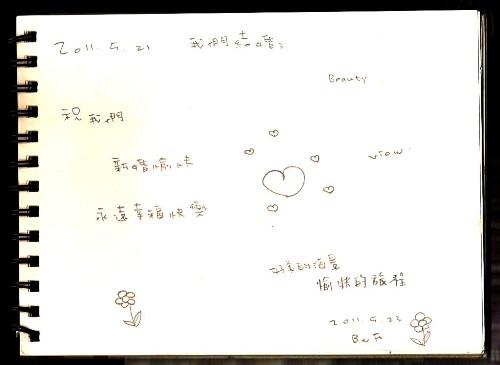 2011.5.21 我們結婚
Beauty
祝我們
新婚愉快
view
永遠幸福快樂
好美的海景
愉快的旅程
2011.5.23